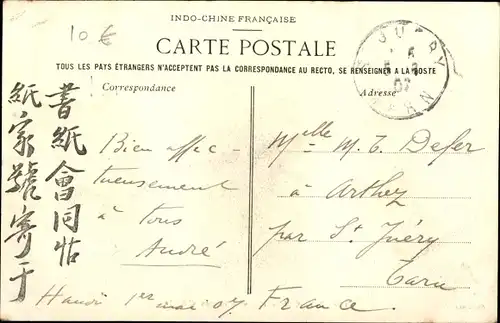 10 €
INDO-CHINE FRANÇAISE
CARTE POSTALE
TOUS LES PAYS ÉTRANGERS N'ACCEPTENT PAS LA CORRESPONDANCE AU RECTO, SE RENSEIGNER A LA POSTE
Correspondance
Adresse
書紙會同帖
紙家號寄于
Bien affec-
tueusement
à tous
André
Hanoi 1er mai 07
Melle M. T. Defer
à Arthez
par St Juéry
Tarn
France.
ST JUERY
TARN